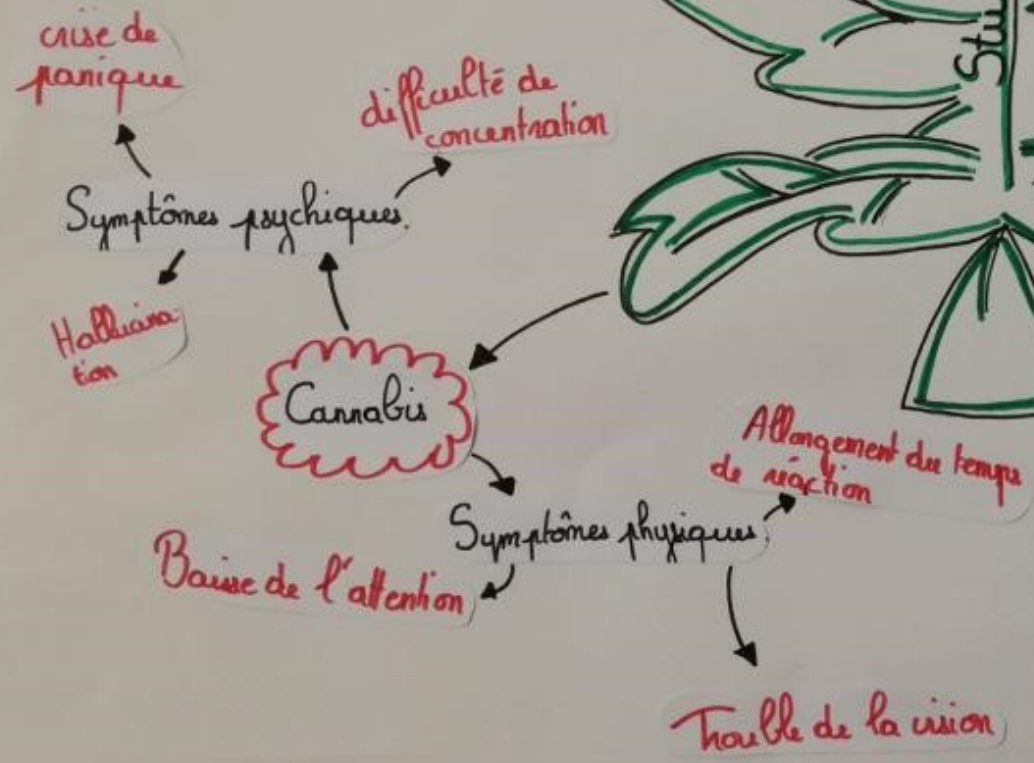 crise de
panique
difficulté de
concentration
Symptômes psychiques.
Hallucina-
tion
Cannabis
Allongement du temps
de réaction
Symptômes physiques.
Baisse de l'attention
Trouble de la vision
Stu